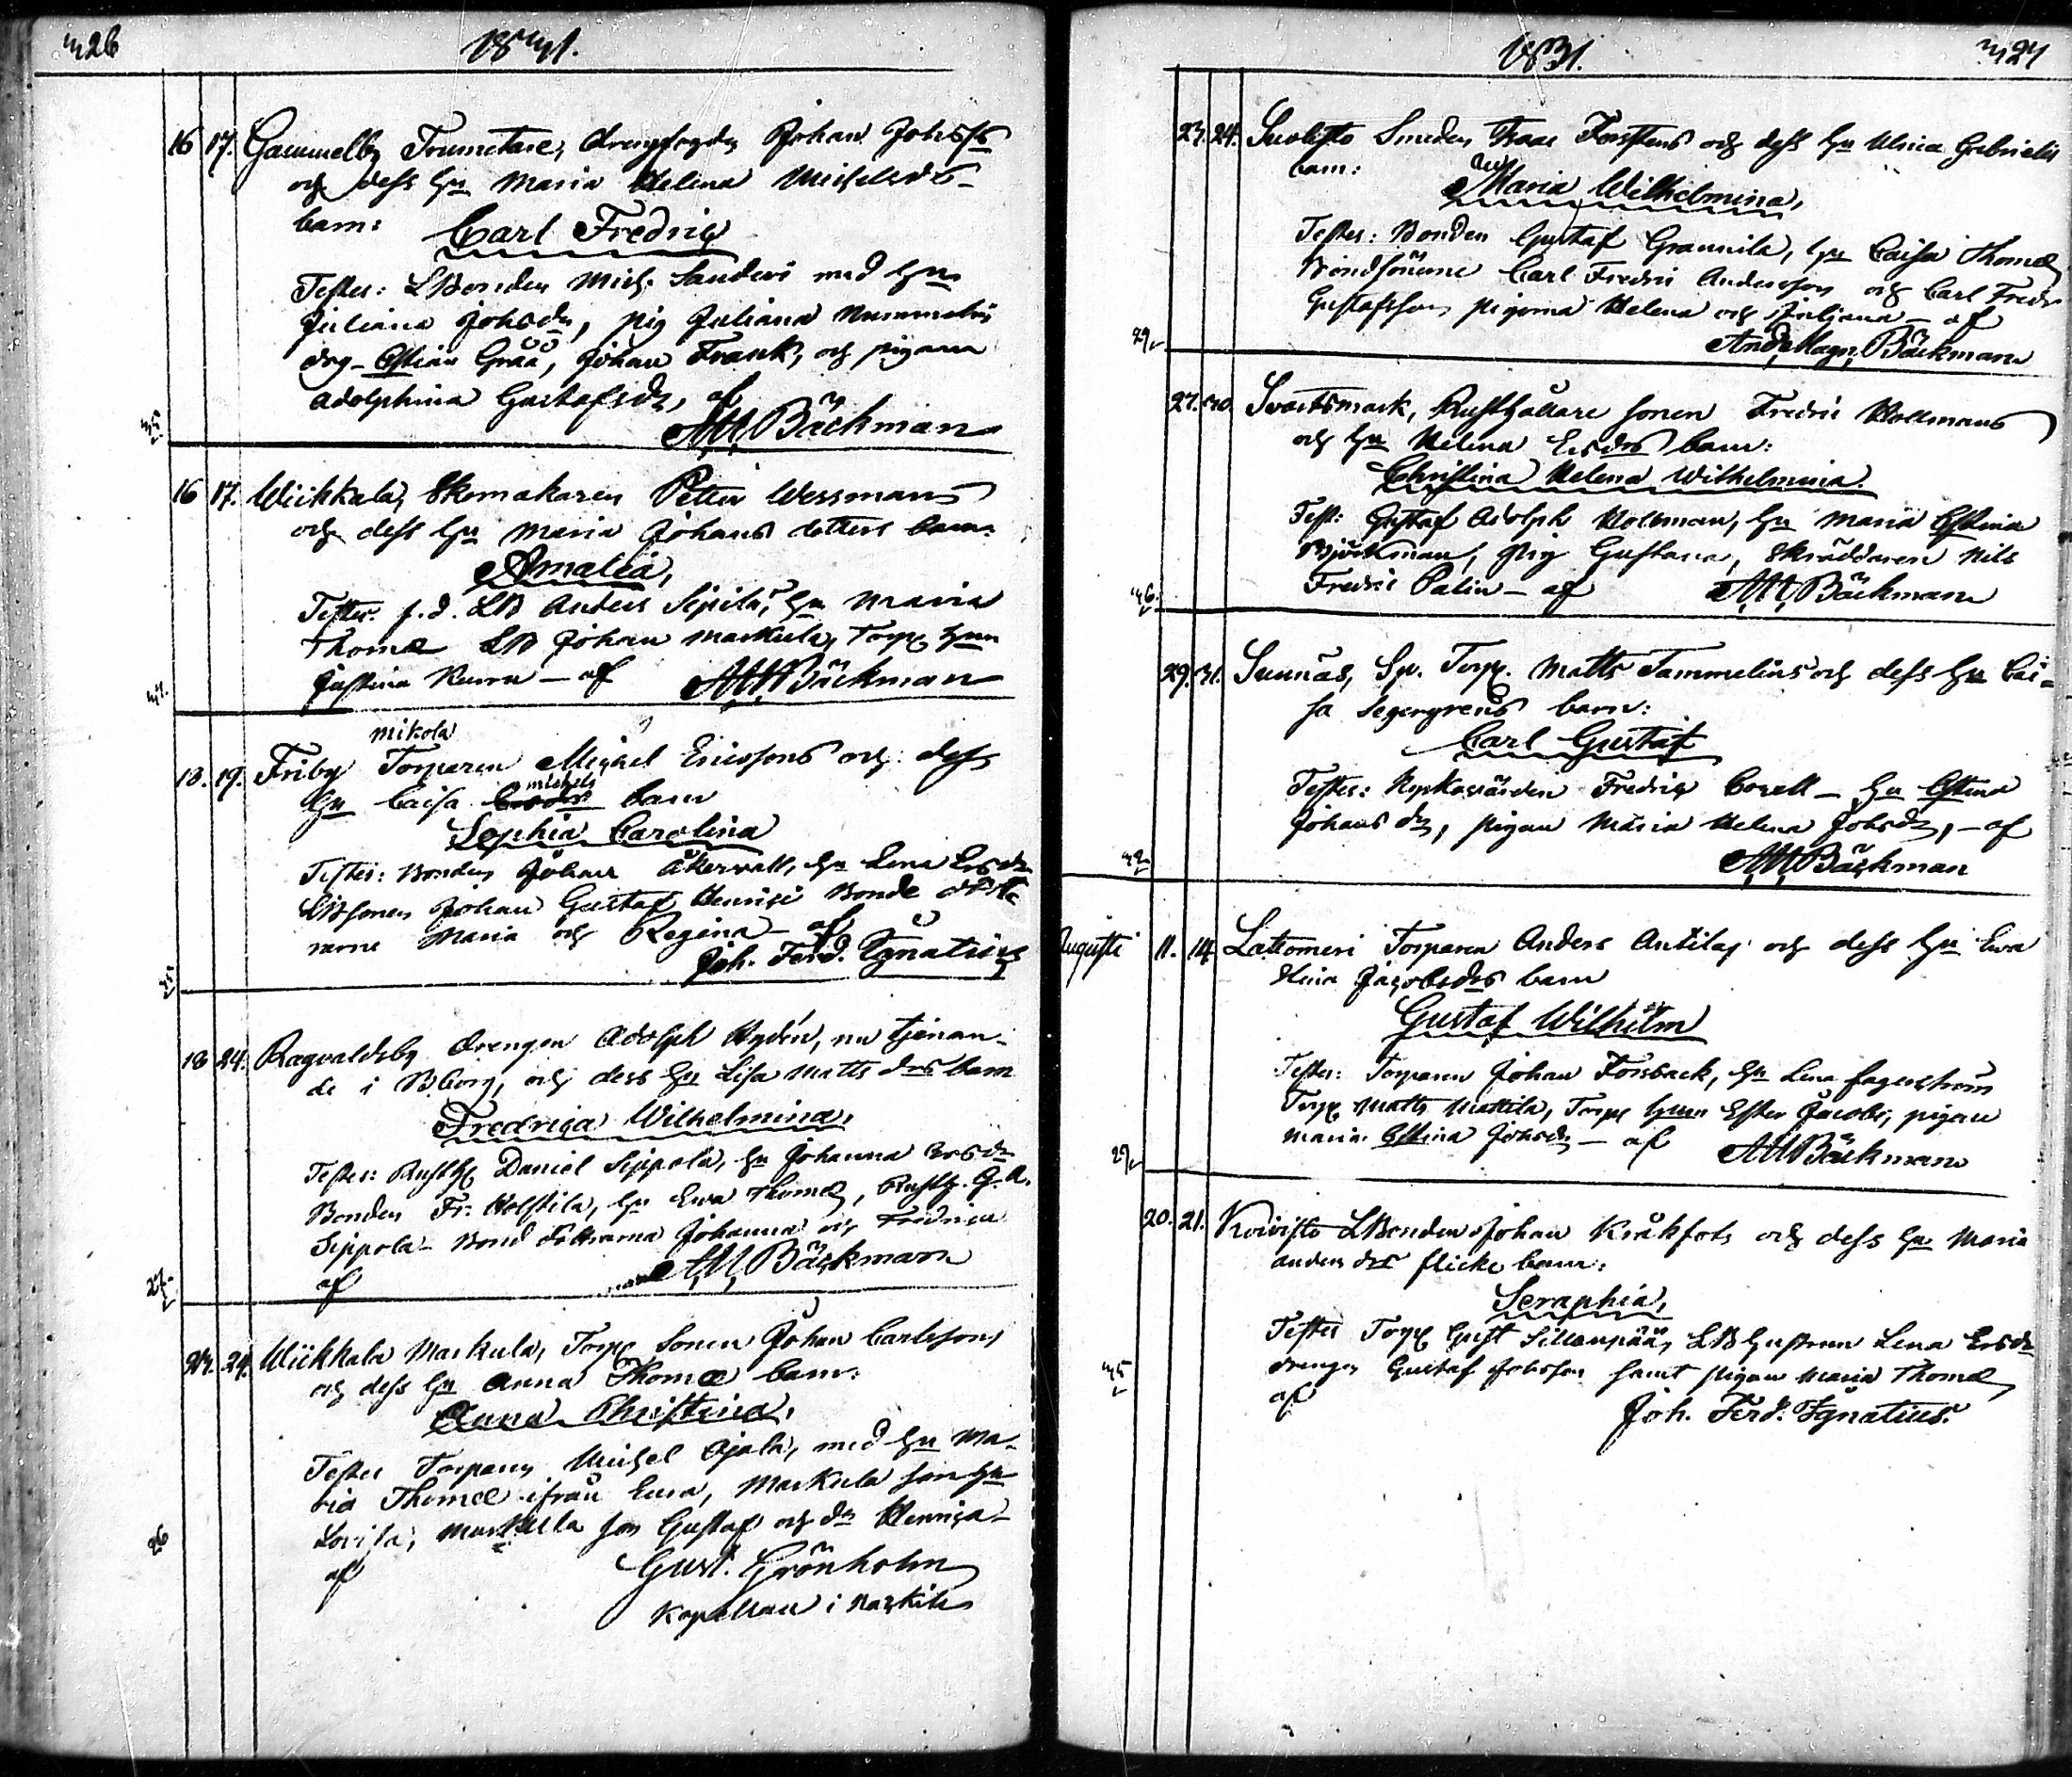 326
1831.
16 17. Gammelby Trumetare, drengfogden Johan Johss:s
och dess hu Maria Helena Michelsdrs
barn: Carl Fredric
Testes: LBonden Mich. Sanderi med hu
Juliana Johsdr, pig Juliana Nummelin
drg Christian Grää, Johan Frank, och pigan
Adolphina Gustafsdr, af
35 AM Bäckman
16 17. Wiikkala, Skomakaren Petter Wessmans
och dess hu Maria Johans dotters barn:
Amalia,
Testes: f.d. LB Anders Sipilä, hu Maria
Thomæ LB Johan Markula, Torp hun
Justina — af AM Bäckman
mikola
18. 19. Friby Torparen Michael Ericssons och dess
michels
hu Caisa barn
Sophia Carolina
Testes: Bonden Johan Åkervall, hu Lena Ersdr
LBsonen Johan Gustaf Henrici Bonde dött-
rarne Maria och Regina — af
Joh. Ferd. Ignatius
18 24. Ragvaldsby drengen Adolph Rydén, nu tjenan-
de i Bborg, och dess hu Lisa Matts drs barn
Fredrica Wilhelmina,
Testes: Rusth Daniel Sippola, hu Johanna Ersdr
Bonden Fr. Holstila, hu Ewa Thomæ, Rusth. G. A.
Sippola — Bond döttrarna Johanna och Fredrica
27. af AM Bäckman
23. 24. Wiikkala Markula, Torp Sonen Johan Carlssons
och dess hu Anna Thomæ barn:
Anna Christina,
Testes Torparen Michel Ojala, med hu Ma-
ria Thomæ ifrån Eura, Markula son hu
Lovisa, Markula son Gustaf och dr Henrica
26 af Gust. Grönholm
Kapellan i
1831.
327
23. 24. Suolisto Smeden Isaac Forstens och dess hu Ulrica Gabrielis
barn:
Maria Wilhelmina,
Testes: Bonden Gustaf Grannila, hu Caisa Thomæ
Bondsönerne Carl Fredric Andersson och Carl Fredr
Gustafsson pigorna Helena och Juliana — af
29. And. Magn. Bäckman
27. 30. Svartsmark, Rusthållare sonen Fredric Hollmans
och hu Helena Ersdrs barn:
Christina Helena Wilhelmina.
Test: Gustaf Adolph Hollman, hu Maria Christina
Björkman, pig Gustava, Skräddaren Nils
Fredric Palin — af AM Bäckman
36.
29. 31. Sunnäs, Sp. Torp. Matts Tammelins och dess hu Cai-
sa Segergrens barn:
Carl Gustaf
Testes: Kyrkovärden Fredric Corell — hu Christina
Johans dr, pigan Maria Helena Johsdr, — af
32 AM Bäckman
Augusti 11. 14. Lattomeri Torparen Anders Antilas och dess hu Ewa
Stina Jacobsdrs barn
Gustaf Wilhelm
Testes: Torparen Johan Forsback, hu Lena Fagerström
Torp Matts Mattila, Torp hun Ester Jacobs, pigan
Maria Christina Johsdr — af AM Bäckman
29.
20. 21. Koivisto LBonden Johan Kråkfots och dess hu Maria
anders drs flicke barn:
Seraphia,
Testes Torp Gust Sillanpää, LB hustrun Lena Ersdr
35 drengen Gustaf Johsson samt pigan Maria Thomæ
af
Joh. Ferd. Ignatius.